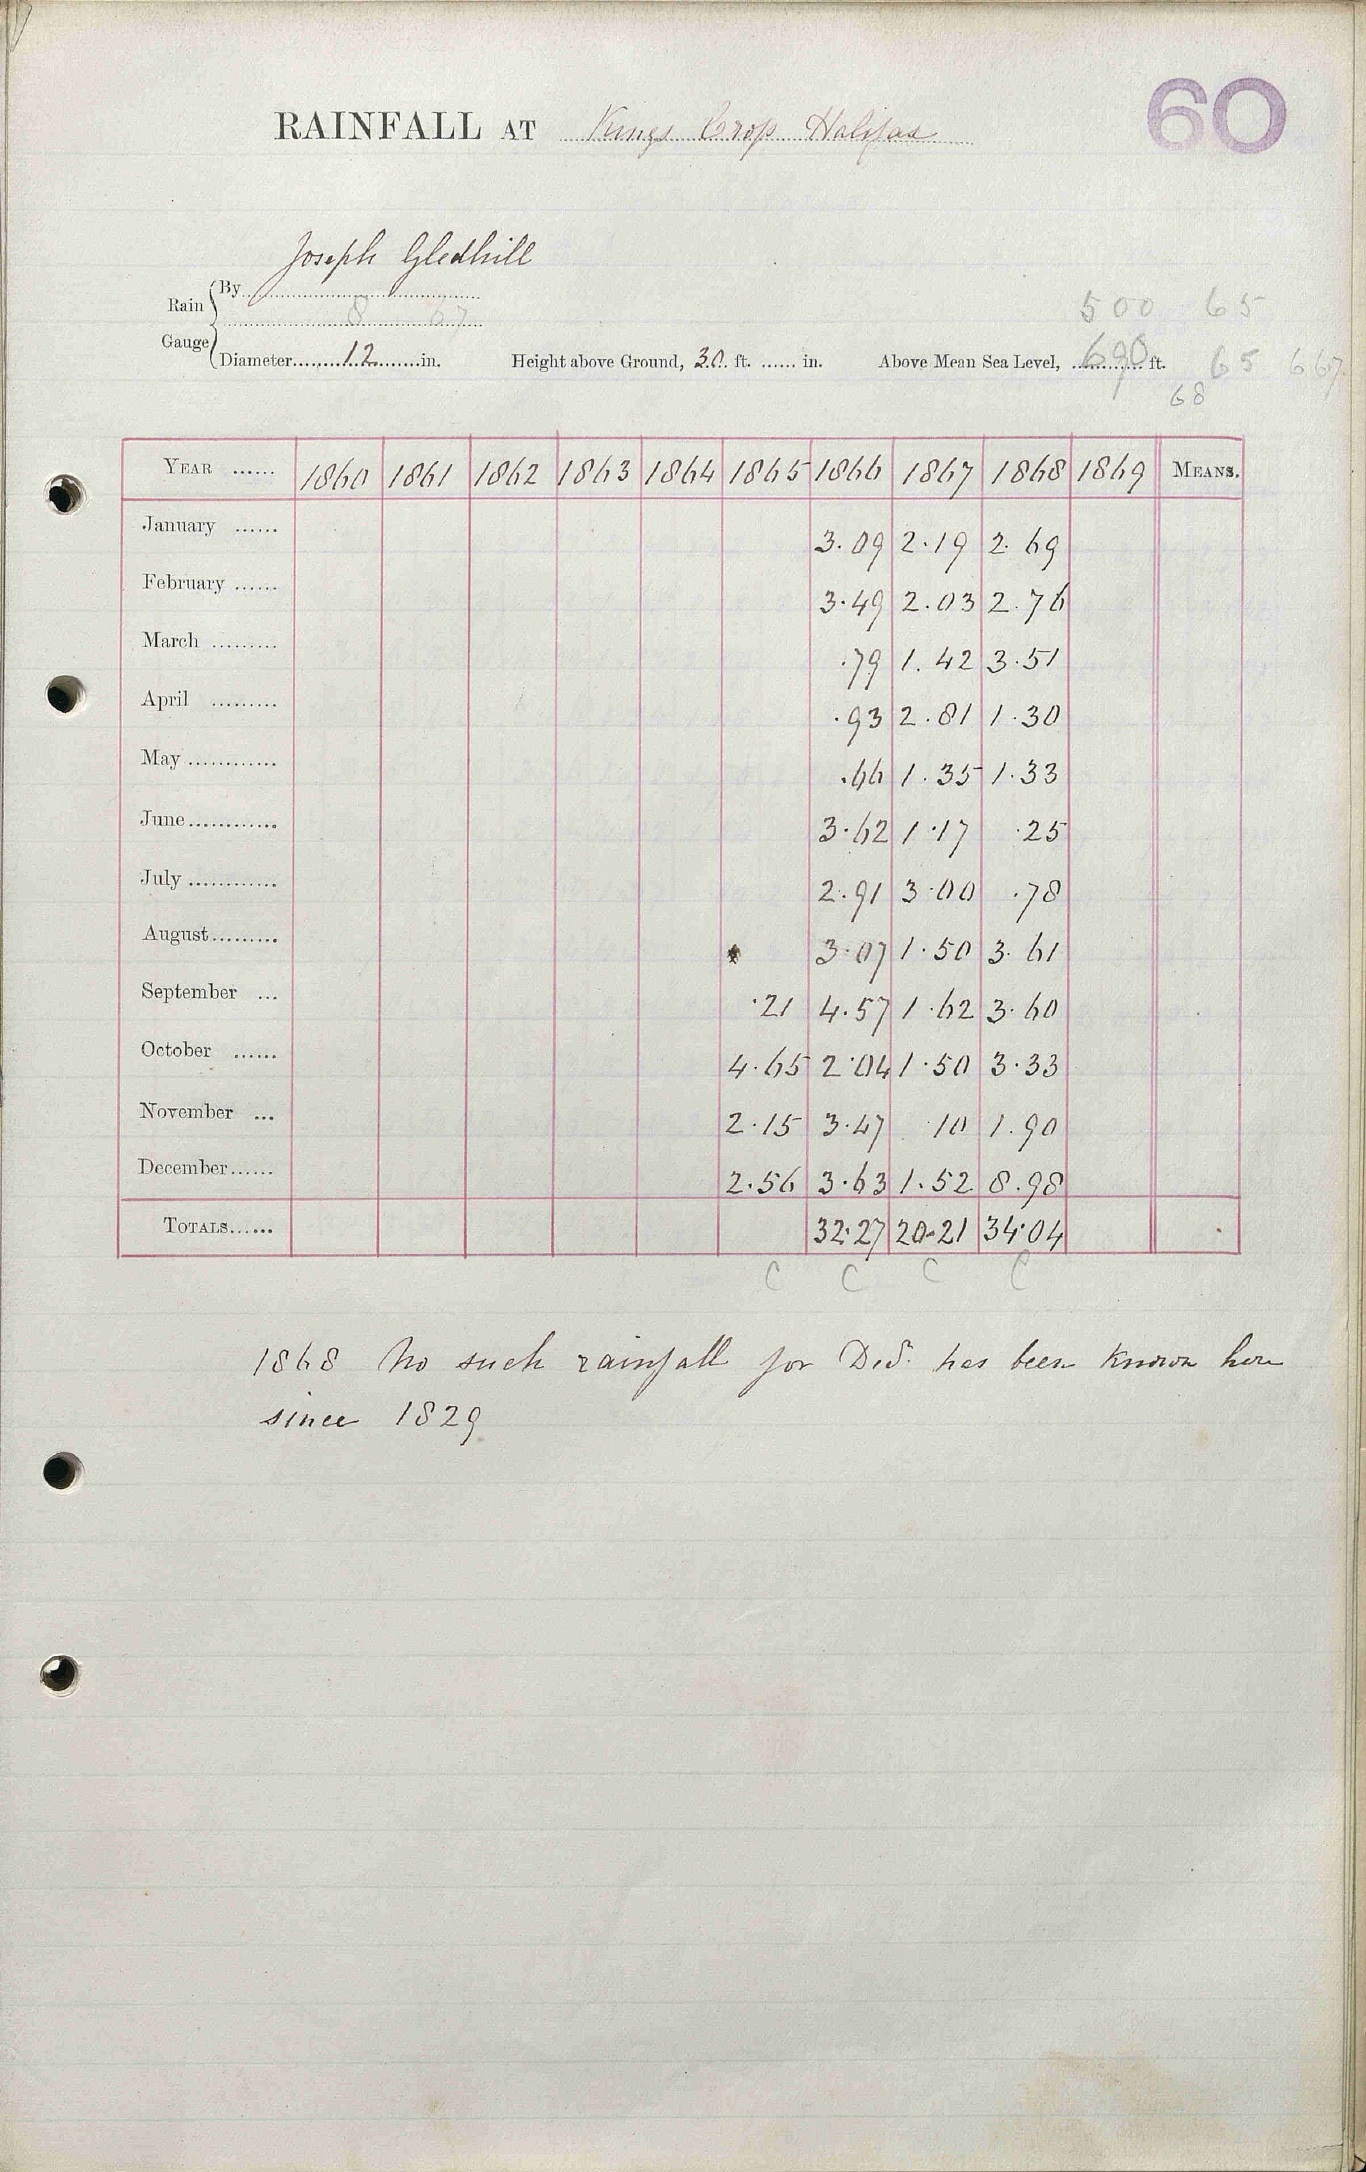 60
RAINFALL AT Kings Crop Halifax
Joseph Gledhill
Rain By
8 67
500 65
Gauge Diameter 12 in. Height above Ground, 30 ft. ...... in. Above Mean Sea Level, 690 ft. 65 667
68
YEAR ...... 1860 1861 1862 1863 1864 1865 1866 1867 1868 1869 MEANS.
January ...... 3.09 2.19 2.69
February ...... 3.49 2.03 2.76
March ......... .79 1.42 3.51
April ......... .93 2.81 1.30
May ............ .66 1.35 1.33
June ............ 3.62 1.17 .25
July ............ 2.91 3.00 .78
August ......... 3.07 1.50 3.61
September ... .21 4.57 1.62 3.60
October ...... 4.65 2.04 1.50 3.33
November ... 2.15 3.47 .10 1.90
December ...... 2.56 3.63 1.52 8.98
TOTALS ...... 32.27 20.21 34.04
C C C C
1868 No such rainfall for Decr. has been known here
since 1829